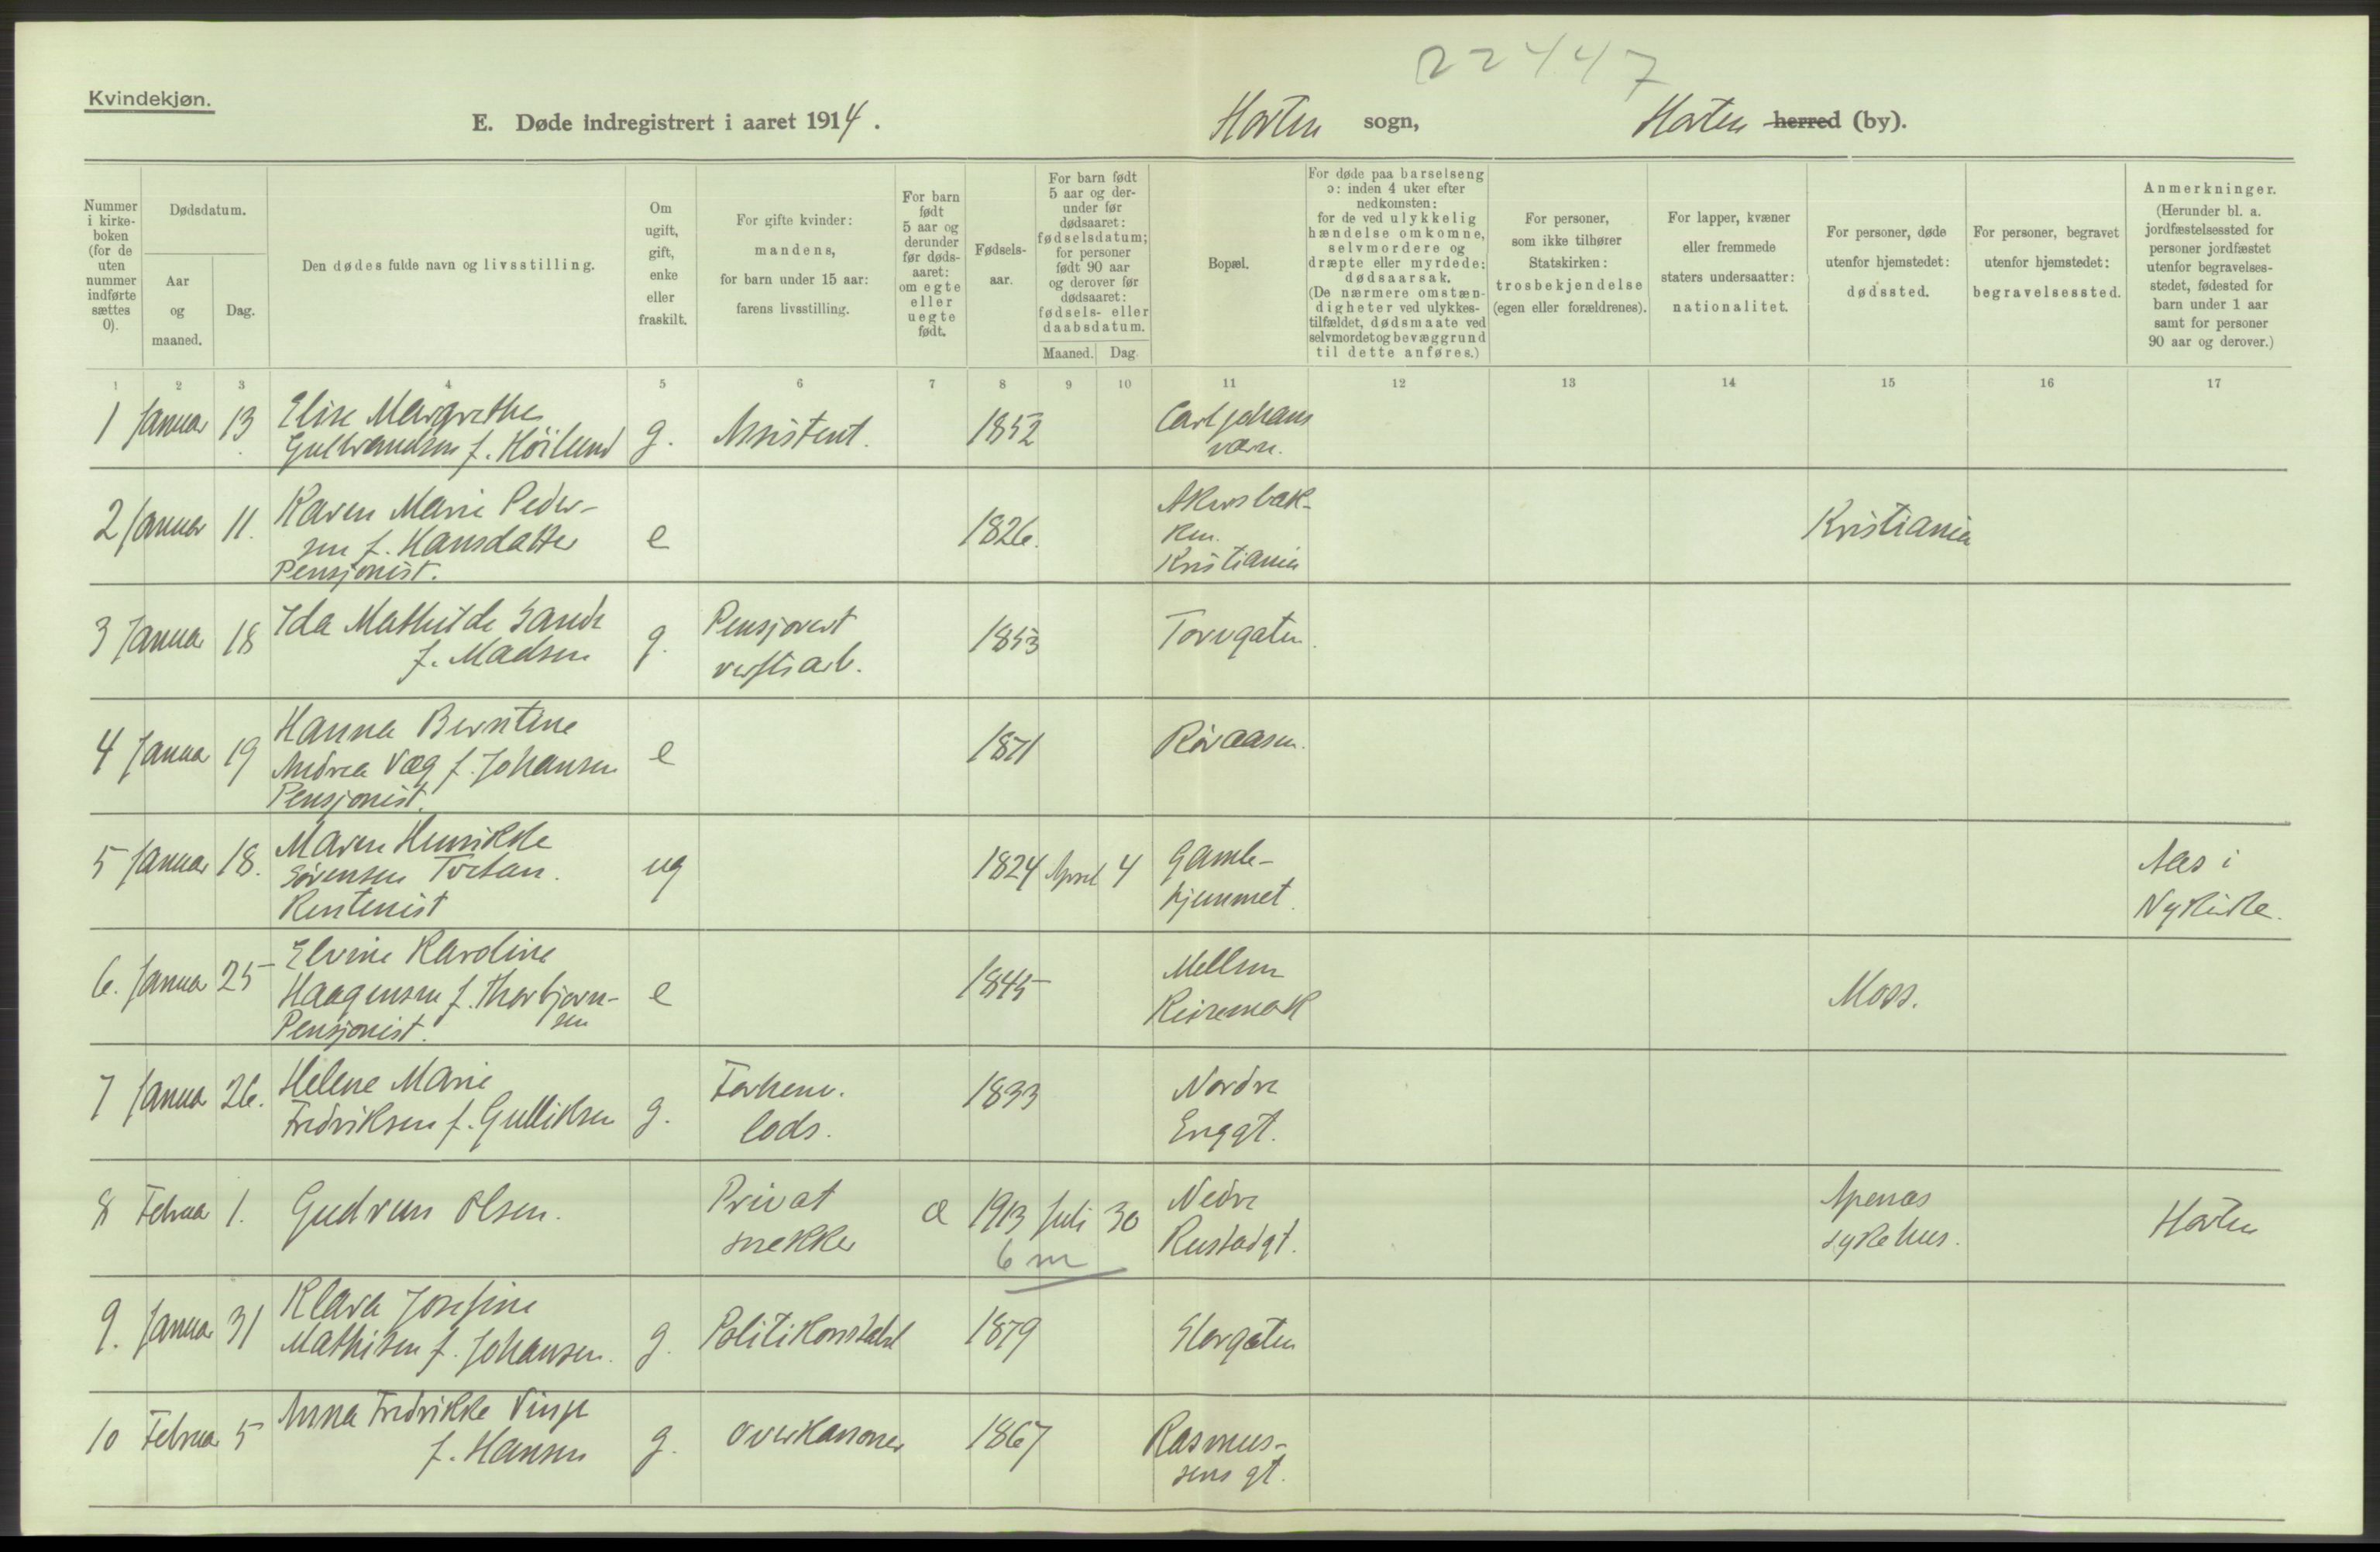 22447
Kvindekjøn.
E. Døde indregistrert i aaret 1914.
Horten sogn,
Horten herred (by).
Nummer i kirke-boken (for de uten nummer indførte sættes 0).
Dødsdatum.
Aar og maaned.
Dag.
Den dødes fulde navn og livsstilling.
Om ugift, gift, enke eller fraskilt.
For gifte kvinder: mandens, for barn under 15 aar: farens livsstilling.
For barn født 5 aar og derunder før døds-aaret: om egte eller uegte født.
Fødsels-aar.
For barn født 5 aar og der-under før dødsaaret: fødselsdatum; for personer født 90 aar og derover før dødsaaret: fødsels- eller daabsdatum.
Maaned.
Dag.
Bopæl.
For døde paa barselseng ɔ: inden 4 uker efter nedkomsten: for de ved ulykkelig hændelse omkomne, selvmordere og dræpte eller myrdede: dødsaarsak. (De nærmere omstæn-digheter ved ulykkes-tilfældet, dødsmaate ved selvmordet og bevæggrund til dette anføres.)
For personer, som ikke tilhører Statskirken: trosbekjendelse (egen eller forældrenes).
For lapper, kvæner eller fremmede staters undersaatter: nationalitet.
For personer, døde utenfor hjemstedet: dødssted.
For personer, begravet utenfor hjemstedet: begravelsessted.
Anmerkninger. (Herunder bl. a. jordfæstelsessted for personer jordfæstet utenfor begravelses-stedet, fødested for barn under 1 aar samt for personer 90 aar og derover.)
1 2 3 4 5 6 7 8 9 10 11 12 13 14 15 16 17
1 Januar 13 Elise Margrethe
Gulbrandsen f. Höilund g. Assistent. 1852 Carl Johans
værn.
2 Januar 11. Karen Marie Peder-
sen f. Hansdatter e 1826. Akersbak-
ken.
Kristiania Kristiania
Pensjonist.
3 Januar 18 Ida Mathilde Sande
f. Madsen g. Pensjonert
verftsarb. 1853 Torvgaten.
4 Januar 19 Hanna Berntine
Andrea Væg f. Johansen e 1871 Røraasen.
Pensjonist.
5 Januar 18. Maren Henrikke
Sörensen Tortan. ug 1824 April 4 Gamle-
hjemmet. Aas i
Nykirke.
Rentenist
6. Januar 25 Elvine Karoline
Haagensen f. Thorbjørn-
sen e 1845 Mellem
Keisemark Moss.
Pensjonist.
7 Januar 26. Helene Marie
Fredriksen f. Gulliksen g. Forhenv.
lods. 1833 Nordre
Enggt.
8 Februar 1. Gudrun Olsen. Privat
snekker æ 1913 Juli 30 Nedre
Rustadgt. Apenæs
sykehus. Horten
6 m
9. Januar 31 Klara Josefine
Mathisen f. Johansen. g. Politikonstabel 1879 Storgaten
10 Februar 5 Anna Fredrikke Vinje
f. Hansen g. Overkanoner 1867 Rasmus-
sens gt.